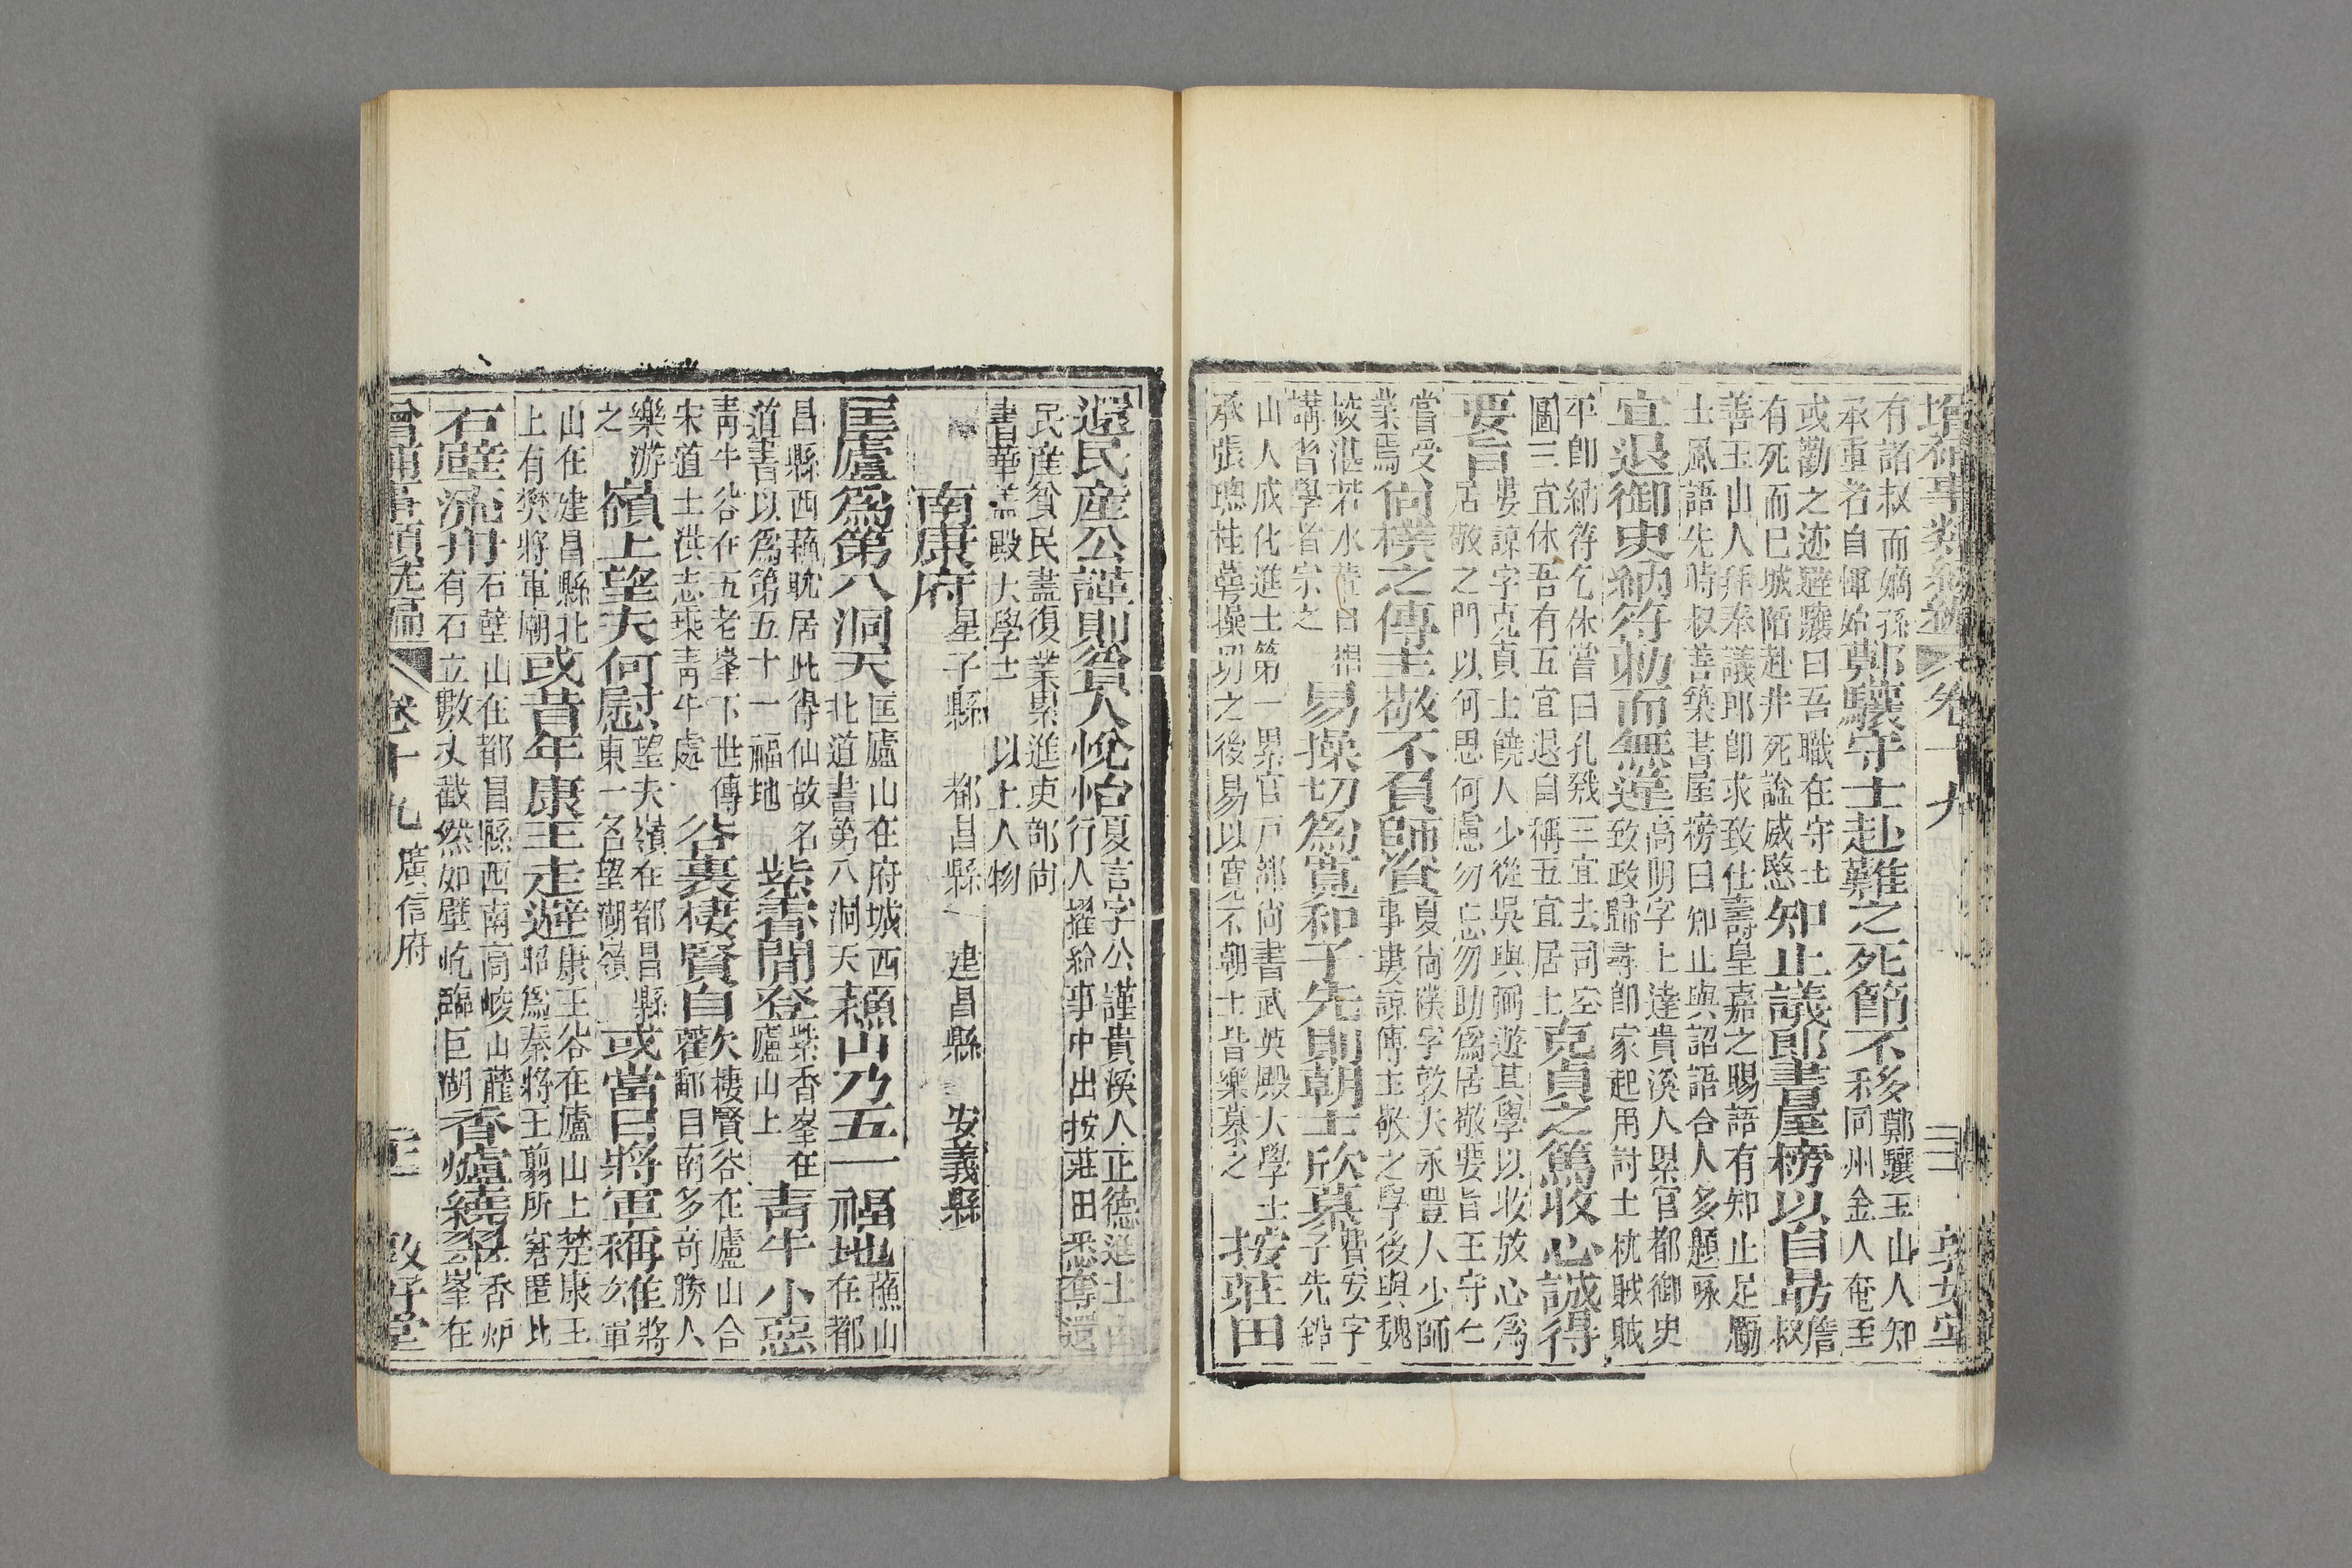 增補事類統編 卷十九 三 敦好堂
有諸叔而嫡孫
承重者自惲始
鄭驤守土赴難之死節不移
鄭驤玉山人知
同州金人奄至
或勸之避驤曰吾職在守土
有死而已城陷赴井死諡威愍
知止議郎書屋榜以自勗
詹
叔
善玉山人拜奉議郎卽求致仕壽皇嘉之賜語有知止足勵
士風語先時叔善築書屋榜曰知止與詔語合人多題咏
宜退御史納符勅而無違
高明字上達貴溪人累官都御史
致政歸尋卽家起用討土枕賊賊
平卽納符乞休嘗曰孔戣三宜去司空
圖三宜休吾有五宜退自稱五宜居士
克貞之篤收心誠得
要旨
婁諒字克貞上饒人少從吳與弼遊其學以收放心爲
居敬之門以何思何慮勿忘勿助爲居敬要旨王守仁
嘗受
業焉
尙樸之傳主敬不負師資
夏尙樸字敦夫永豐人少師
事婁諒傳主敬之學後與魏
棱湛若水輩日相
講習學者宗之
易操切爲寬和子先則朝士欣慕
費安字
子先鉛
山人成化進士第一累官戸部尙書武英殿大學士
承張璁桂萼操切之後易以寬 不朝士皆樂慕之
按莊田
還民産公謹則貧人悅怡
夏言字公謹貴溪人正德進士由
行人擢給事中出按莊田悉奪還
民産貧民盡復業累進吏部尙
書華蓋殿大學士 以上人物
南康府 星子縣 都昌縣 建昌縣 安義縣
匡廬爲第八洞天
匡廬山在府城西
北道書第八洞天
蘓山乃五一福地
蘓山
在都
昌縣西蘓耽居此得仙故名
道書以爲第五十一福地
紫霄聞登
紫香峯在
廬山上
靑牛小憩
靑牛谷在五老峯下世傳
宋道士洪志乘靑牛處
谷裏棲賢自歡
棲賢谷在廬山合
鄱目南多奇勝人
樂游
之
嶺上望夫何慰
望夫嶺在都昌縣
東一名望湖嶺
或當日將軍稱雄
將
軍
山在建昌縣北
上有樊將軍廟
或昔年康王走避
康王谷在廬山上楚康王
耶爲秦將王翦所窘匿此
石壁流丹
石壁山在都昌縣西南高峻山麓
有石立數丈截然如壁屹臨巨湖
香爐繞翠
香炉
峯在
會通事類統編 卷十九 廣信府 敦好堂